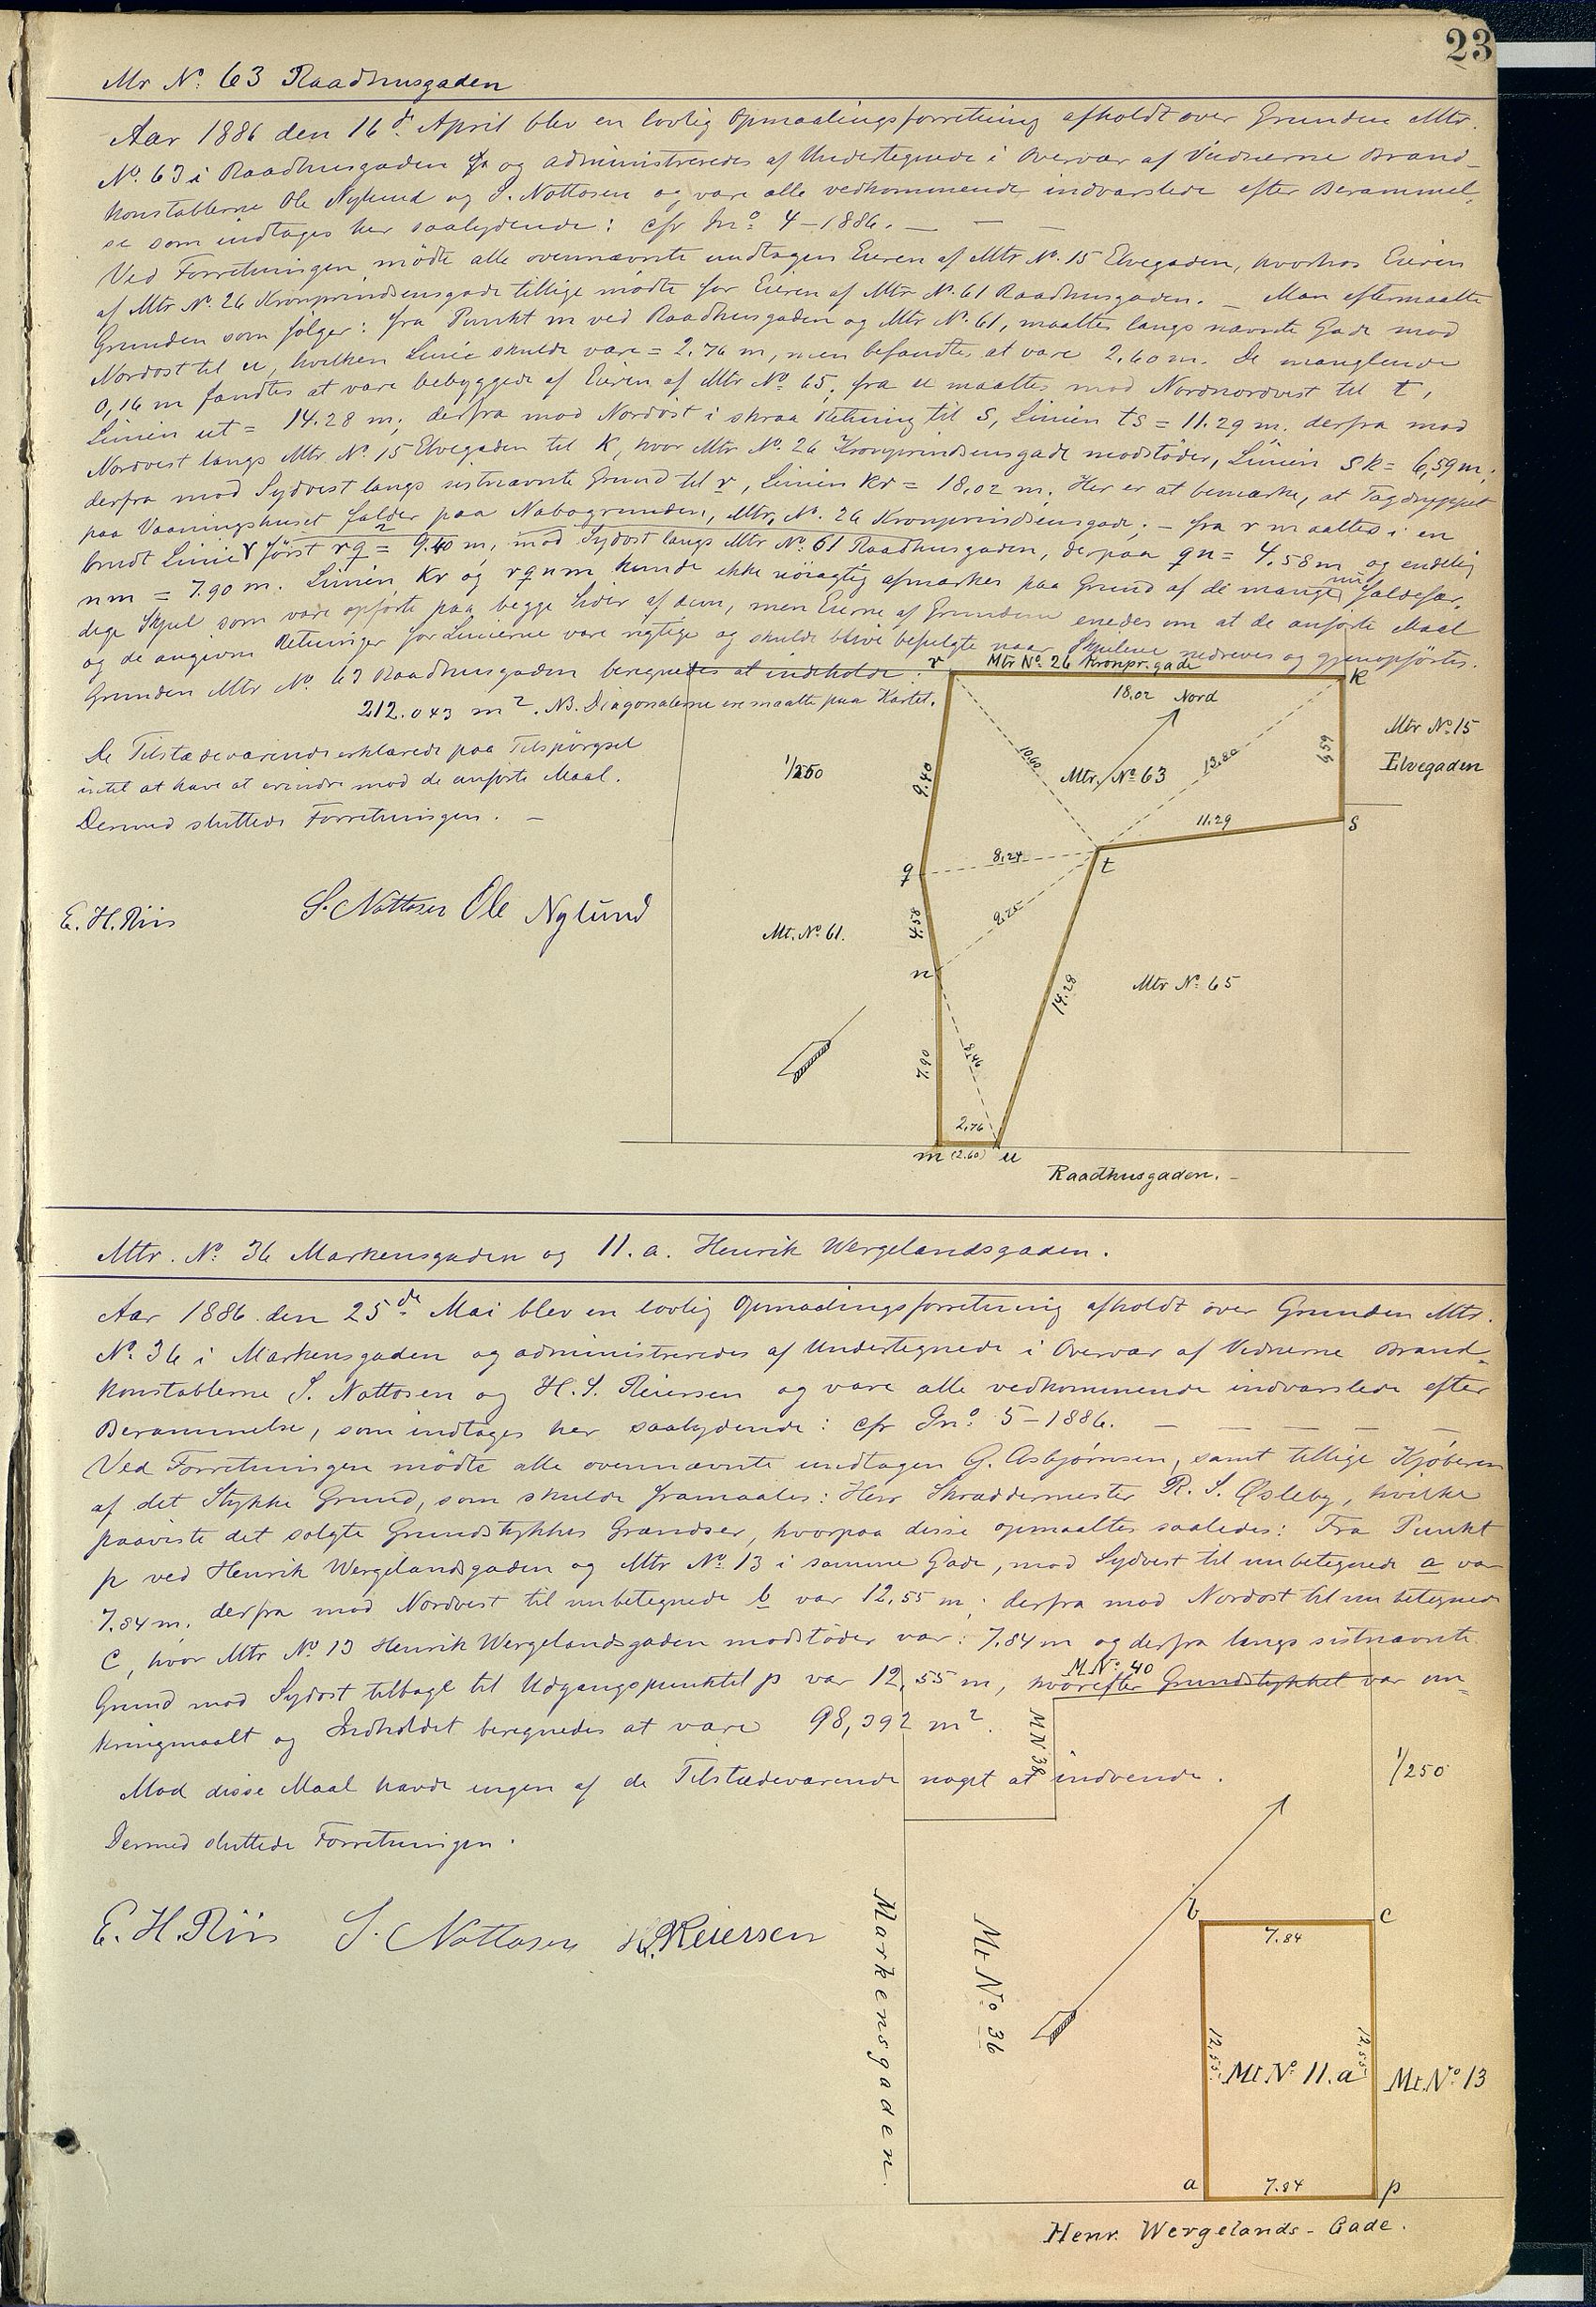 23
Mr No. 63 Raadhusgaden
Aar 1886 den 16d. April blev en lovlig Opmaalingsforretning afholdt over Grunden Mtr.
No. 63 i Raadhusgaden og administreredes af Undertegnede i Overvær af Vidnerne Brand-
konstablerne Ole Nylund og S. Nottosen og vare alle vedkommende indvarslede efter Berammel-
se som indtages her saalydende: cfr Jno. 4-1886. — —
Ved Forretningen mødte alle ovennævnte undtagen Eieren af Mtr No. 15 Elvegaden, hvorhos Eieren
af Mtr No. 26 Kronprindsensgade tillige mødte for Eieren af Mtr No. 61 Raadhusgaden. — Man eftermaalte
Grunden som følger: fra Punkt m ved Raadhusgaden og Mtr No. 61, maaltes langs nævnte Gade mod
Nordost til u, hvilken Linie skulde være = 2,76 m, men befandtes at være 2,60 m. De manglende
0,16 m fandtes at være bebyggede af Eieren af Mtr No. 65; fra u maaltes mod Nordnordvest til t,
Linien ut = 14.28 m; derfra mod Nordost i skraa Retning til S, Linien ts = 11.29 m. derfra mod
Nordvest langs Mtr. No. 15 Elvegaden til K, hvor Mtr No. 26 Kronprindsensgade modstøder, Linien SK = 6,59 m;
derfra mod Sydvest langs sistnævnte Grund til r, Linien Kr = 18,02 m. Her er at bemærke, at Tagdryppet
paa Vaaningshuset falder paa Nabogrunden, Mtr. No. 26 Kronprindsensgade; — fra r maaltes i en
brudt Linie først rq = 9.40 m, mod Sydost langs Mtr No. 61 Raadhusgaden, derpaa qn = 4,58 m og endelig
nm = 7.90 m. Linien Kr og rqnm kunde ikke nøiagtig afmærkes paa Grund af de mange nu faldefær-
dige Skjul som vare opførte paa begge Sider af dem, men Eierne af Grundene enedes om at de anførte Maal
og de angivne Retninger for Linierne vare rigtige og skulde blive befulgte naar Skjulene nedreves og gjenopførtes.
Grunden Mtr No. 63 Raadhusgaden beregnedes at indeholde:
212.043 m2. NB. Diagonalerne ere maalte paa Kartet.
De Tilstædeværende erklærede paa Tilspørgsel
intet at have at erindre mod de anførte Maal.
Dermed sluttede Forretningen. —
E. H. Riis
S. Nottosen Ole Nylund
r
Mtr No. 26 Kronpr.gade
K
18.02
Nord
Mtr No. 15
Elvegaden
1/250
9.40
10.60
Mtr. No. 63
13.80
6.59
11.29
S
q
8,24
t
4.58
9,25
Mt. No. 61.
n
14.28
Mtr No. 65
7.90
8,46
2,76
m (2.60) u
Raadhusgaden. —
Mtr. No. 36 Markensgaden og 11. a. Henrik Wergelandsgaden.
Aar 1886 den 25de Mai blev en lovlig Opmaalingsforretning afholdt over Grunden Mtr.
No. 36 i Markensgaden og administreredes af Undertegnede i Overvær af Vidnerne Brand-
konstablerne S. Nottosen og H. S. Reiersen og vare alle vedkommende indvarslede efter
Berammelse, som indtages her saalydende: cfr Jno. 5-1886. — — — — —
Ved Forretningen mødte alle ovennævnte undtagen G. Asbjørnsen, samt tillige Kjøberen
af det Stykke Grund, som skulde framaales: Herr Skræddermester R. S. Øsleby, hvilke
paaviste det solgte Grundstykkes Grændser, hvorpaa disse opmaaltes saaledes: Fra Punkt
p ved Henrik Wergelandsgaden og Mtr No. 13 i samme Gade, mod Sydvest til nu betegnede a var
7.84 m. derfra mod Nordvest til nu betegnede b var 12,55 m; derfra mod Nordost til nu betegnede
C, hvor Mtr No. 13 Henrik Wergelandsgaden modstøder var: 7.84 m og derfra langs sistnævnte
Grund mod Sydost tilbage til Udgangspunktet p var 12,55 m, hvorefter Grundstykket var om-
kringmaalt og Indholdet beregnedes at være 98,392 m2.
Mod disse Maal havde ingen af de Tilstædeværende noget at indvende.
Dermed sluttede Forretningen.
E. H. Riis S. Nottosen H. Reiersen
M No. 40
M N 38
1/250
b
c
7.84
Markensgaden.
Mt No. 36
12,55
12,55
Mt No. 11.a
Mt. No. 13
a
7.84
p
Henr. Wergelands-Gade.